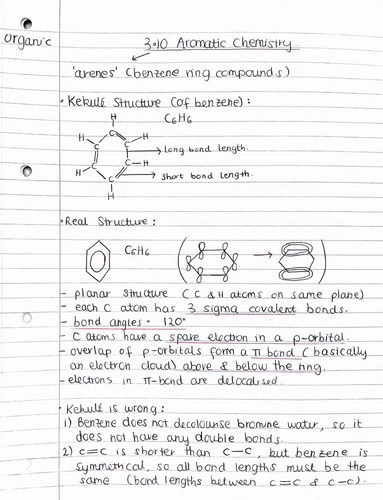 organic
3.10 Aromatic Chemistry
'arenes' (benzene ring compounds)
• Kekulé Structure (of benzene):
C6H6
H
H C H
C C
C C — H
H C
H
long bond length.
short bond length.
• Real Structure:
C6H6
- planar structure (C & H atoms on same plane)
- each C atom has 3 sigma covalent bonds.
- bond angles - 120°
- C atoms have a spare electron in a p-orbital.
- overlap of p-orbitals form a π bond (basically
an electron cloud) above & below the ring.
- electrons in π-bond are delocalised.
• Kekulé is wrong:
1) Benzene does not decolourise bromine water, so it
does not have any double bonds.
2) C=C is shorter than C-C, but benzene is
symmetrical, so all bond lengths must be the
same (bond lengths between C=C & C-C).